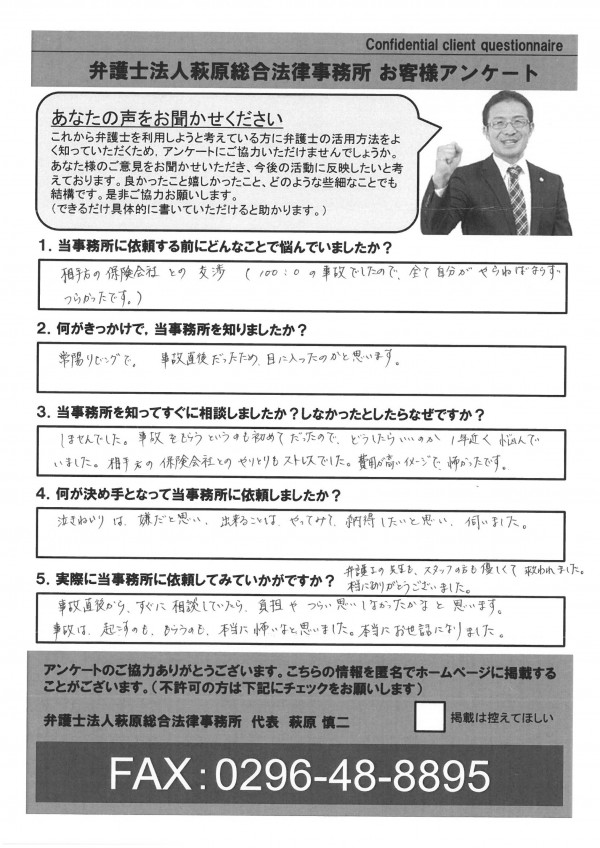 Confidential client questionnaire
弁護士法人萩原総合法律事務所 お客様アンケート
あなたの声をお聞かせください
これから弁護士を利用しようと考えている方に弁護士の活用方法をよ
く知っていただくため、アンケートにご協力いただけませんでしょうか。
あなた様のご意見をお聞かせいただき、今後の活動に反映したいと考
えております。良かったこと嬉しかったこと、どのような些細なことでも
結構です。是非ご協力お願いします。
(できるだけ具体的に書いていただけると助かります。)
1. 当事務所に依頼する前にどんなことで悩んでいましたか?
相手方の保険会社との交渉 (100:0の事故でしたので、全て自分がやらねばならず
つらかったです。)
2. 何がきっかけで,当事務所を知りましたか?
常陽リビングで。 事故直後だったため、目に入ったのかと思います。
3. 当事務所を知ってすぐに相談しましたか?しなかったとしたらなぜですか?
しませんでした。事故をもらうというのも初めてだったので、どうしたらいいのか1年近く悩んで
いました。相手方の保険会社とのやりとりもストレスでした。費用が高いイメージで、怖かったです。
4. 何が決め手となって当事務所に依頼しましたか?
泣きねいりは、嫌だと思い、出来ることは、やってみて、納得したいと思い、伺いました。
5. 実際に当事務所に依頼してみていかがですか?
弁護士の先生も、スタッフの方も優しくて救われました。
本当にありがとうございました。
事故直後から、すぐに相談していたら、負担やつらい思いしなかったかなと思います。
事故は、起こすのも、もらうのも、本当に怖いなと思いました。本当にお世話になりました。
アンケートのご協力ありがとうございます。こちらの情報を匿名でホームページに掲載する
ことがございます。(不許可の方は下記にチェックをお願いします)
弁護士法人萩原総合法律事務所 代表 萩原 慎二
掲載は控えてほしい
FAX:0296-48-8895